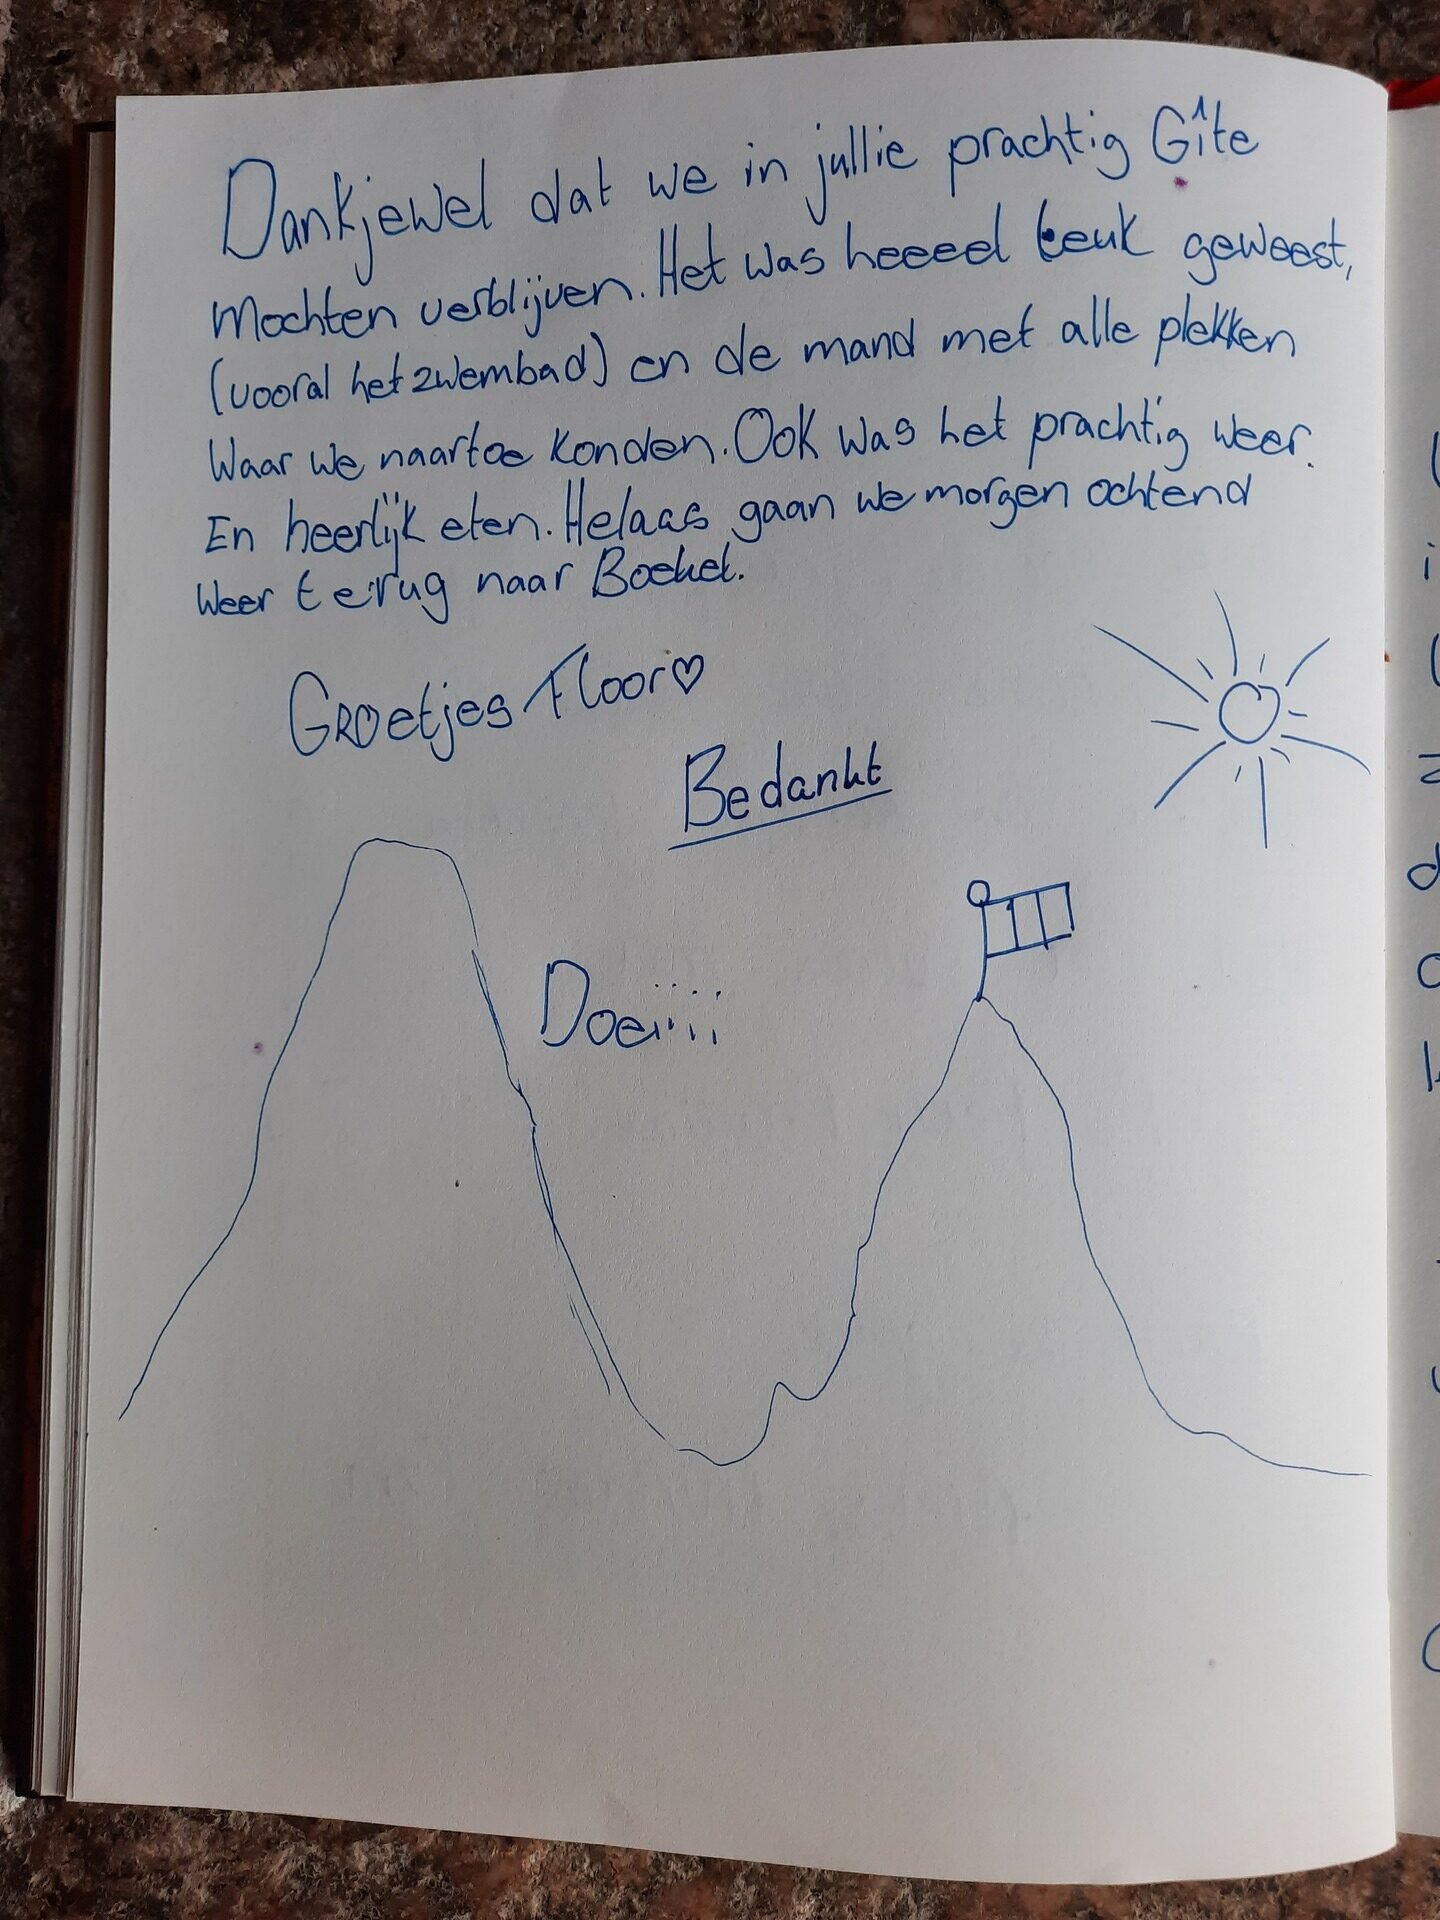 Dankjewel dat we in jullie prachtig Gîte
mochten verblijven. Het was heeeel leuk geweest,
(vooral het zwembad) en de mand met alle plekken
waar we naartoe konden. Ook was het prachtig weer.
En heerlijk eten. Helaas gaan we morgen ochtend
weer terug naar Boekel.
Groetjes Floor♡
Bedankt
Doeiiii